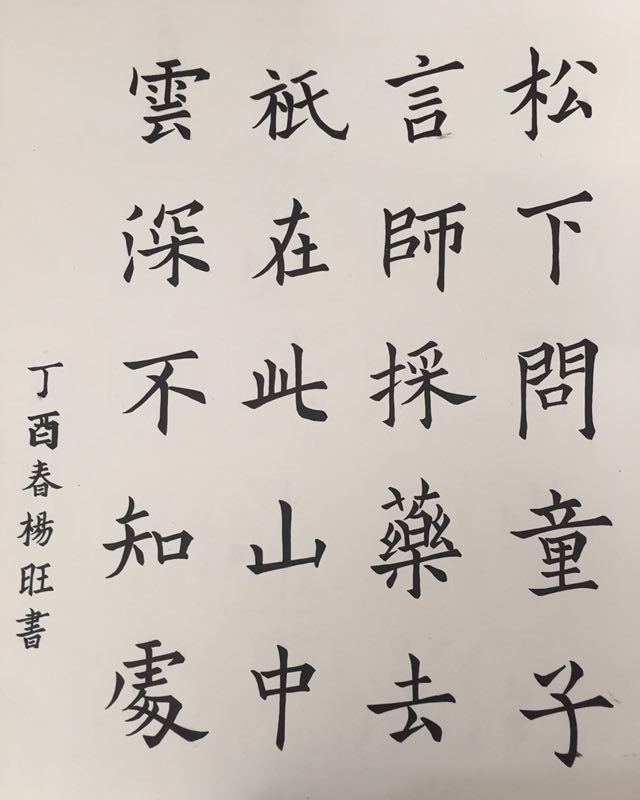 松下問童子
言師採藥去
祇在此山中
雲深不知處
丁酉春楊旺書